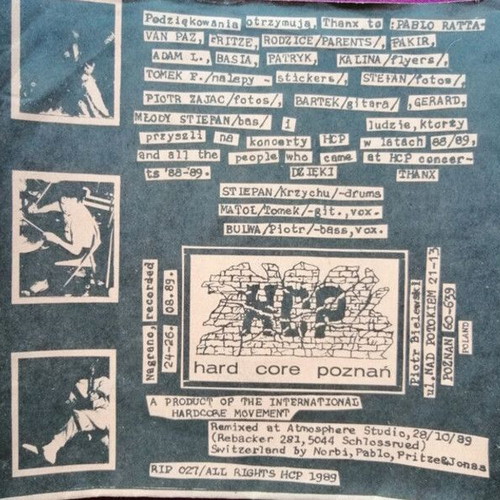 Podziękowania otrzymują, Thanx to :PABLO RATTA-
VAN PAZ, FRITZE, RODZICE/PARENTS/, FAKIR,
ADAM L., BASIA, PATRYK, KALINA/flyers/,
TOMEK F./nalepy - stickers/, STEFAN/fotos/,
PIOTR ZAJĄC/fotos/, BARTEK/gitara/, GERARD,
MŁODY STIEPAN/bas/ i ludzie, którzy
przyszli na koncerty HCP w latach 88/89,
and all the people who came at HCP concer-
ts '88-89. DZIĘKI THANX
STIEPAN/Krzychu/-drums
MATOŁ/Tomek/-git.,vox.
BULWA/Piotr/-bass,vox.
Nagrano, recorded
24-26. 08.89.
HCP
hard core poznań
Piotr Bielewski
ul. NAD POTOKIEM 21-13
POZNAŃ 60-639
POLAND
A PRODUCT OF THE INTERNATIONAL
HARDCORE MOVEMENT
Remixed at Atmosphere Studio, 28/10/89
(Rebacker 281, 5044 Schlossrued)
Switzerland by Norbi, Pablo, Fritze&Jonas
RIP 027/ALL RIGHTS HCP 1989